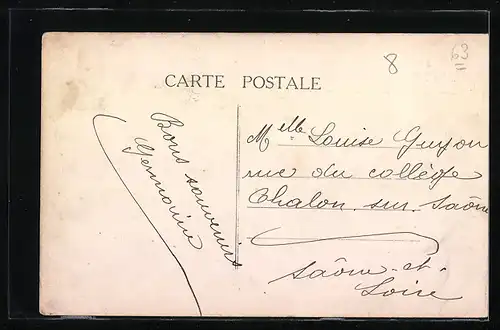 8
63
CARTE POSTALE
Bons souvenirs
Germaine
Melle Louise Guyon
rue du collège
Chalon sur Saône
Saône-et-
Loire